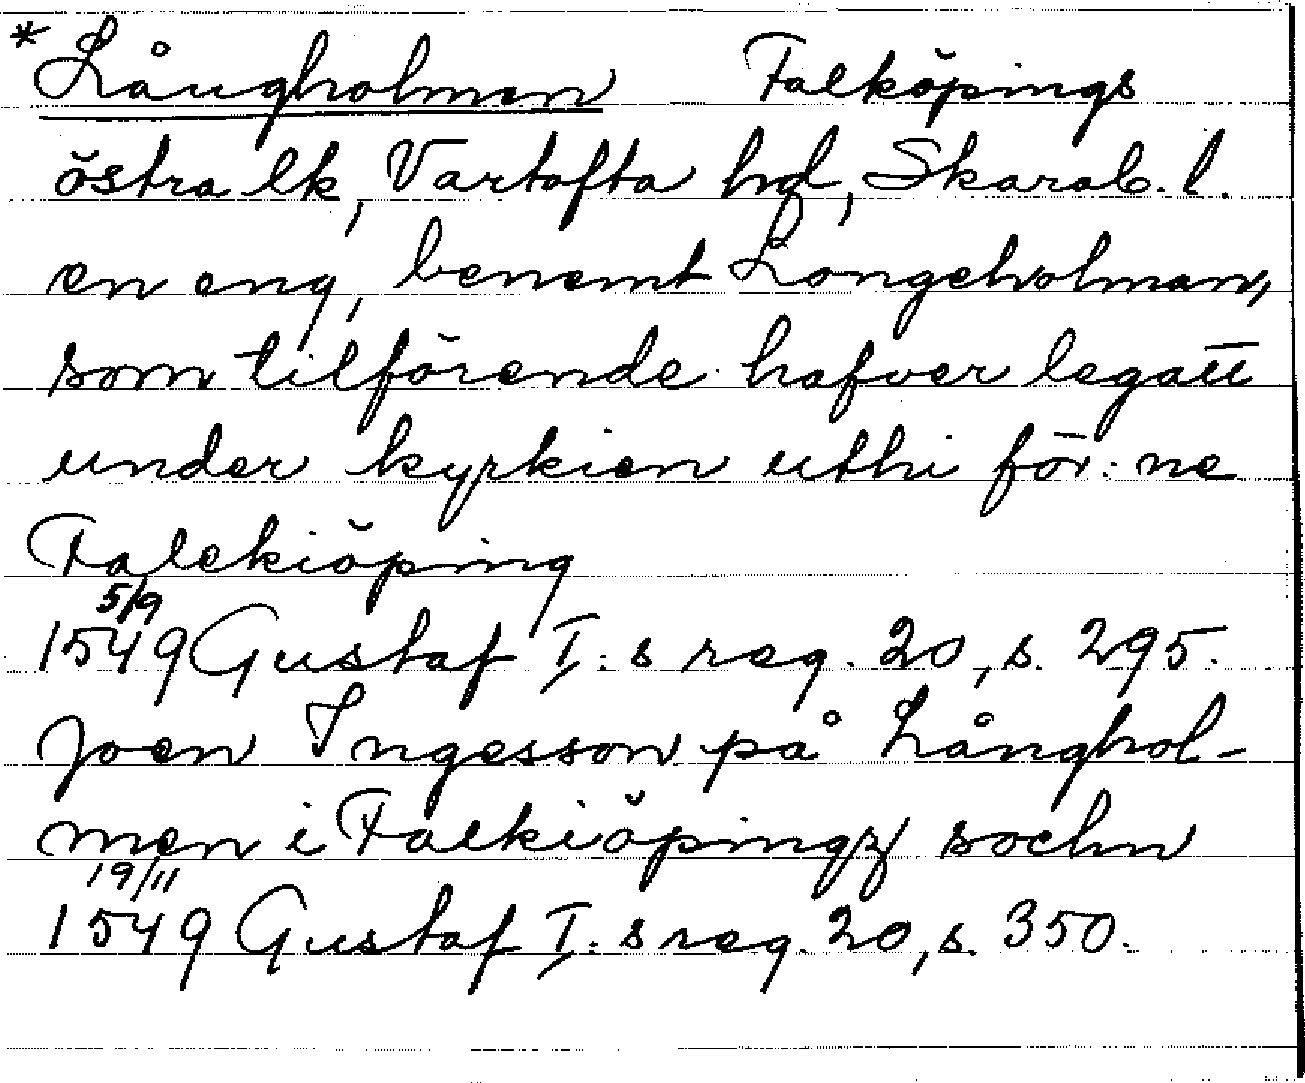 * Långholmen Falköpings
östra lk, Vartofta hd, Skarab. l.
en eng, benemt Longeholman,
som tilförende hafver legatt
under kyrkien uthi för:ne
Falekiöping
5/9
1549 Gustaf I:s reg. 20, s. 295.
Joen Ingesson på Långhol-
men i Falkiöpingz sochn
19/11
1549 Gustaf I:s reg. 20, s. 350.